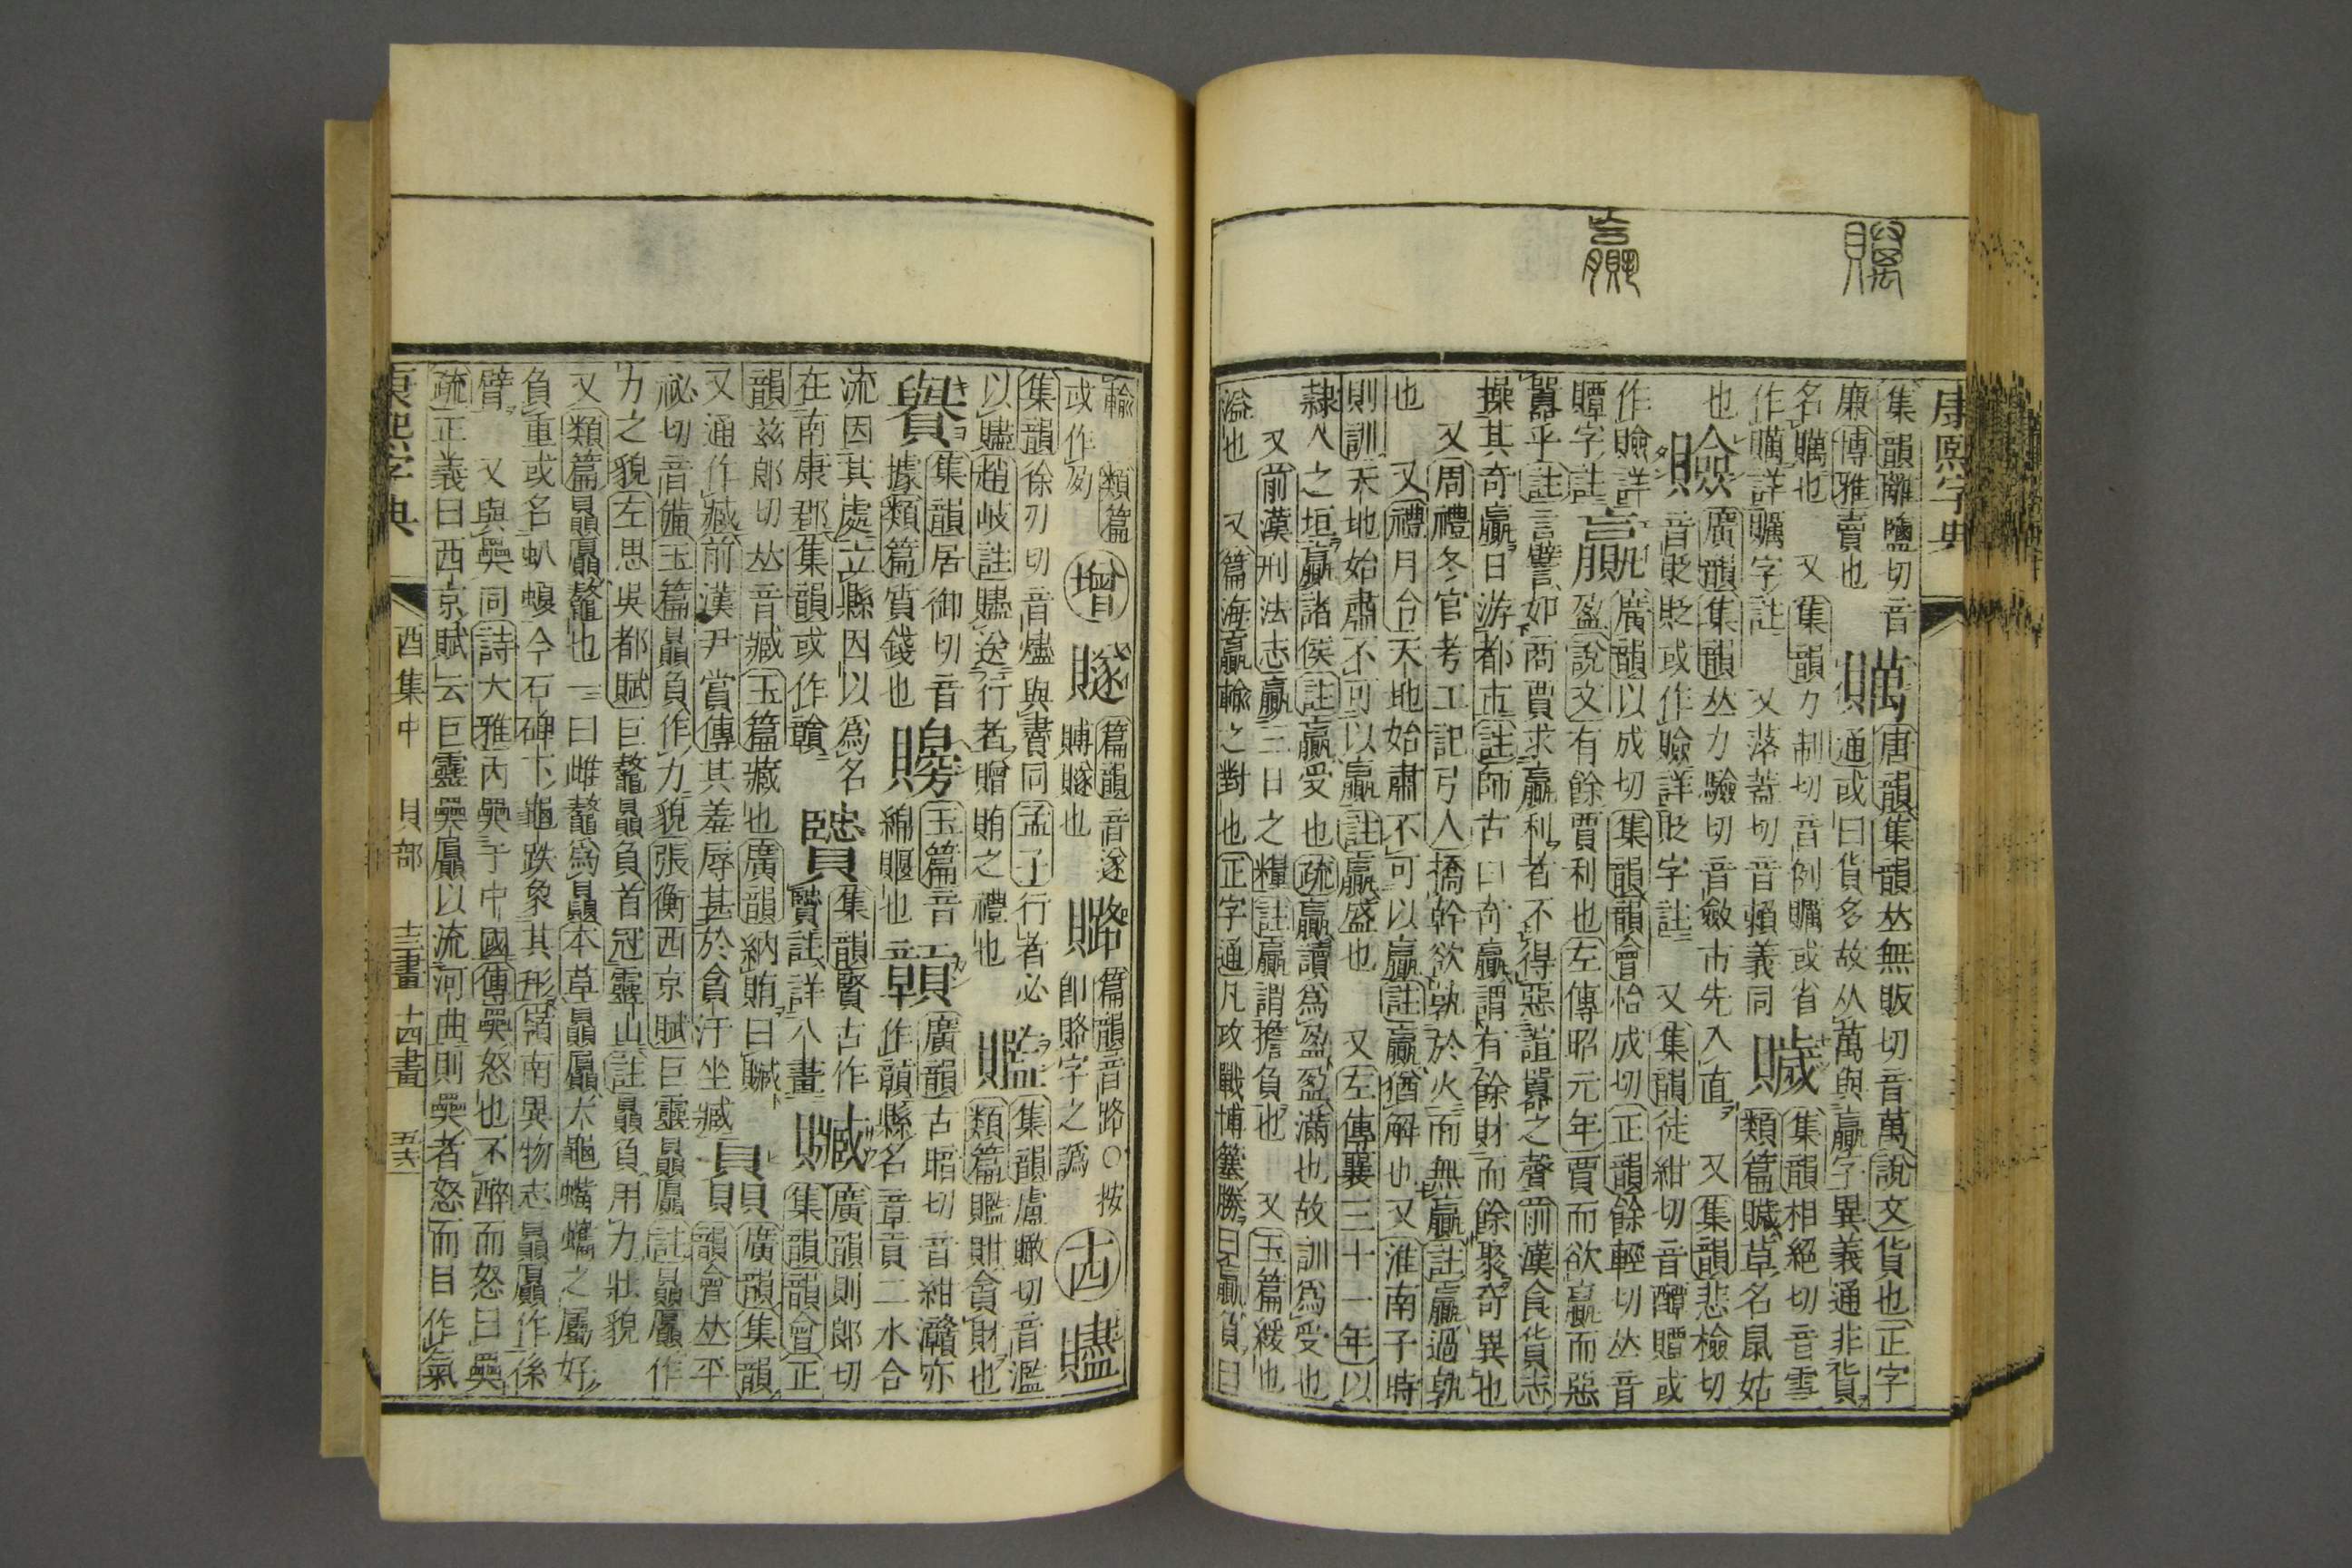 康熙字典
集韻離鹽切音
廉博雅賣也
贎
唐韻集韻𠀤無販切音萬說文貨也正字
通或曰貨多故从萬與贏字異義通非貨
名 也
又集韻力制切音例 或省
作 詳 字註
又落蓋切音賴義同
集韻相絕切音雪
類篇 草名鼠姑
也
廣韻集韻𠀤力驗切音斂市先入直
又集韻悲檢切
音貶貶或作 詳貶字註
又集韻徒紺切音醰贉或
作 詳
贉字註
贏
廣韻以成切集韻韻會怡成切正韻餘輕切𠀤音
盈說文有餘賈利也左傳昭元年賈而欲贏而惡
囂乎註言譬如商賈求贏利者不得惡諠囂之聲前漢食貨志
操其奇贏日游都市註師古曰奇贏謂有餘財而餘聚奇異也
又周禮冬官考工記弓人撟幹欲孰於火而無贏註贏過孰
也 又禮月令天地始肅不可以贏註贏猶解也又淮南子時
則訓天地始肅不可以贏註贏盛也 又左傳襄三十一年以
隸人之垣贏諸侯註贏受也疏贏讀爲盈盈滿也故訓爲受也
又前漢刑法志贏三日之糧註贏謂擔負也 又玉篇緩也
溢也 又篇海贏輸之對也正字通凡政戰博簺勝曰贏負曰
輸
類篇
或作㓝
增
䢫
篇韻音遂
賻 也
篇韻音路○按
卽賂字之譌
古
贐
集韻徐刃切音燼與賮同孟子行者必
以贐趙岐註贐送行者贈賄之禮也
集韻盧瞰切音濫
類篇 㽉貪財也
集韻居御切音
據類篇質錢也
玉篇音
綿賱也
贑
廣韻古暗切音紺灨亦
作贑縣名章貢二水合
流因其處立縣因以爲名
在南康郡集韻或作贛
集韻賢古作
註詳八畫
贓
廣韻則郎切
集韻韻會正
韻兹郎切𠀤音臧玉篇藏也廣韻納賄曰贓
又通作臧前漢尹賞傳其羞辱甚於貪汙坐臧
贔
廣韻集韻
韻會𠀤平
祕切音備玉篇贔負作力貌張衡西京賦巨靈贔屭註贔屭作
力之貌左思吳都賦巨鼇贔負首冠靈山註贔負用力壯貌
又類篇贔屭鼇也一曰雌鼇爲贔本草贔屭大龜蟕蠵之屬好
負重或名虭蝮今石碑下龜趺象其形嶺南異物志贔屭作係
臂 又與奰同詩大雅內奰于中國傳奰怒也不醉而怒曰奰
疏正義曰西京賦云巨靈奰屭以流河曲則奰者怒而目作氣
康熙字典
酉集中
貝部
十三畫
十四畫